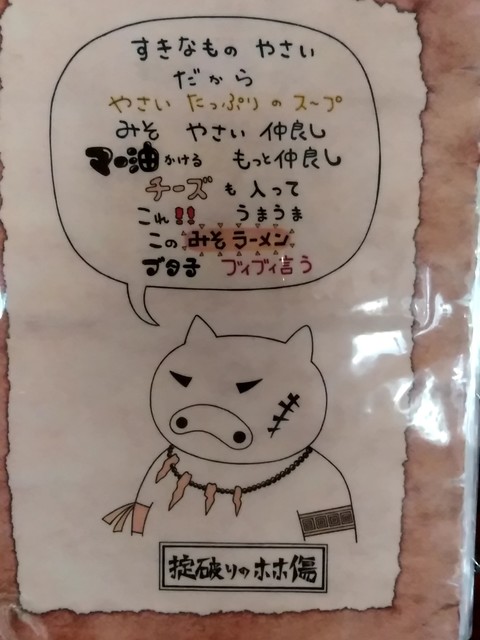 すきなもの やさい
だから
やさい たっぷり の スープ
みそ やさい 仲良し
マー油 かける もっと仲良し
チーズ も 入って
これ!! うまうま
この みそ ラーメン
ブタ子 ブィブィ言う
掟破りのホホ傷